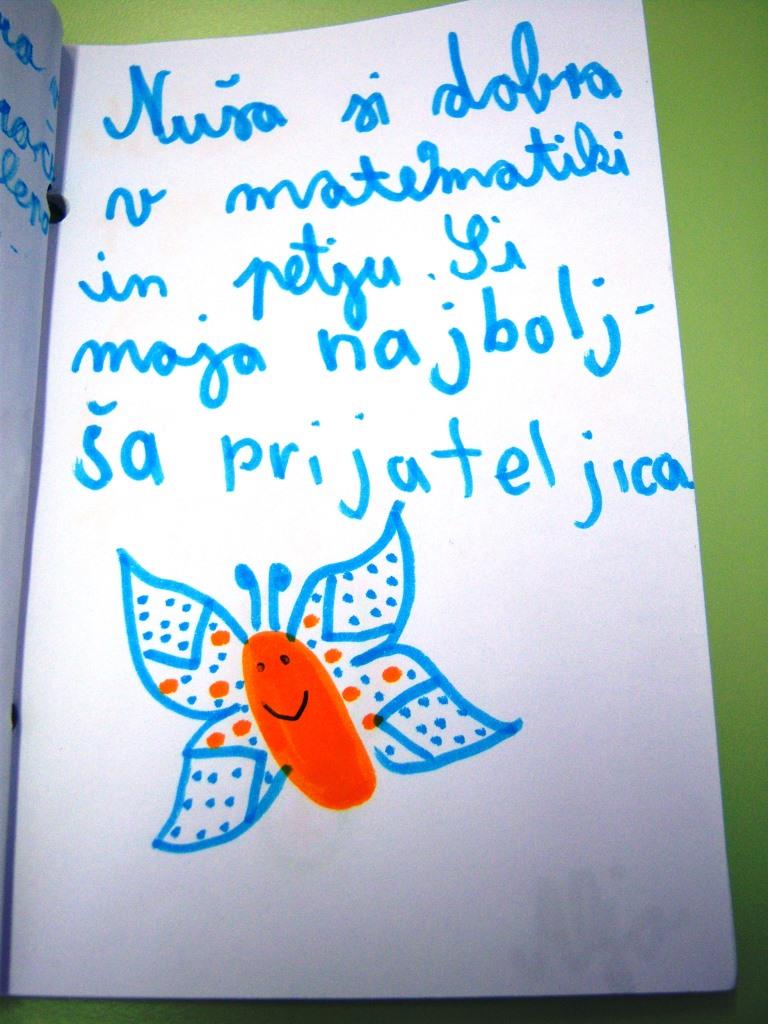 Nuša si dobra
v matematiki
in petju. Si
moja najbolj-
ša prijateljica